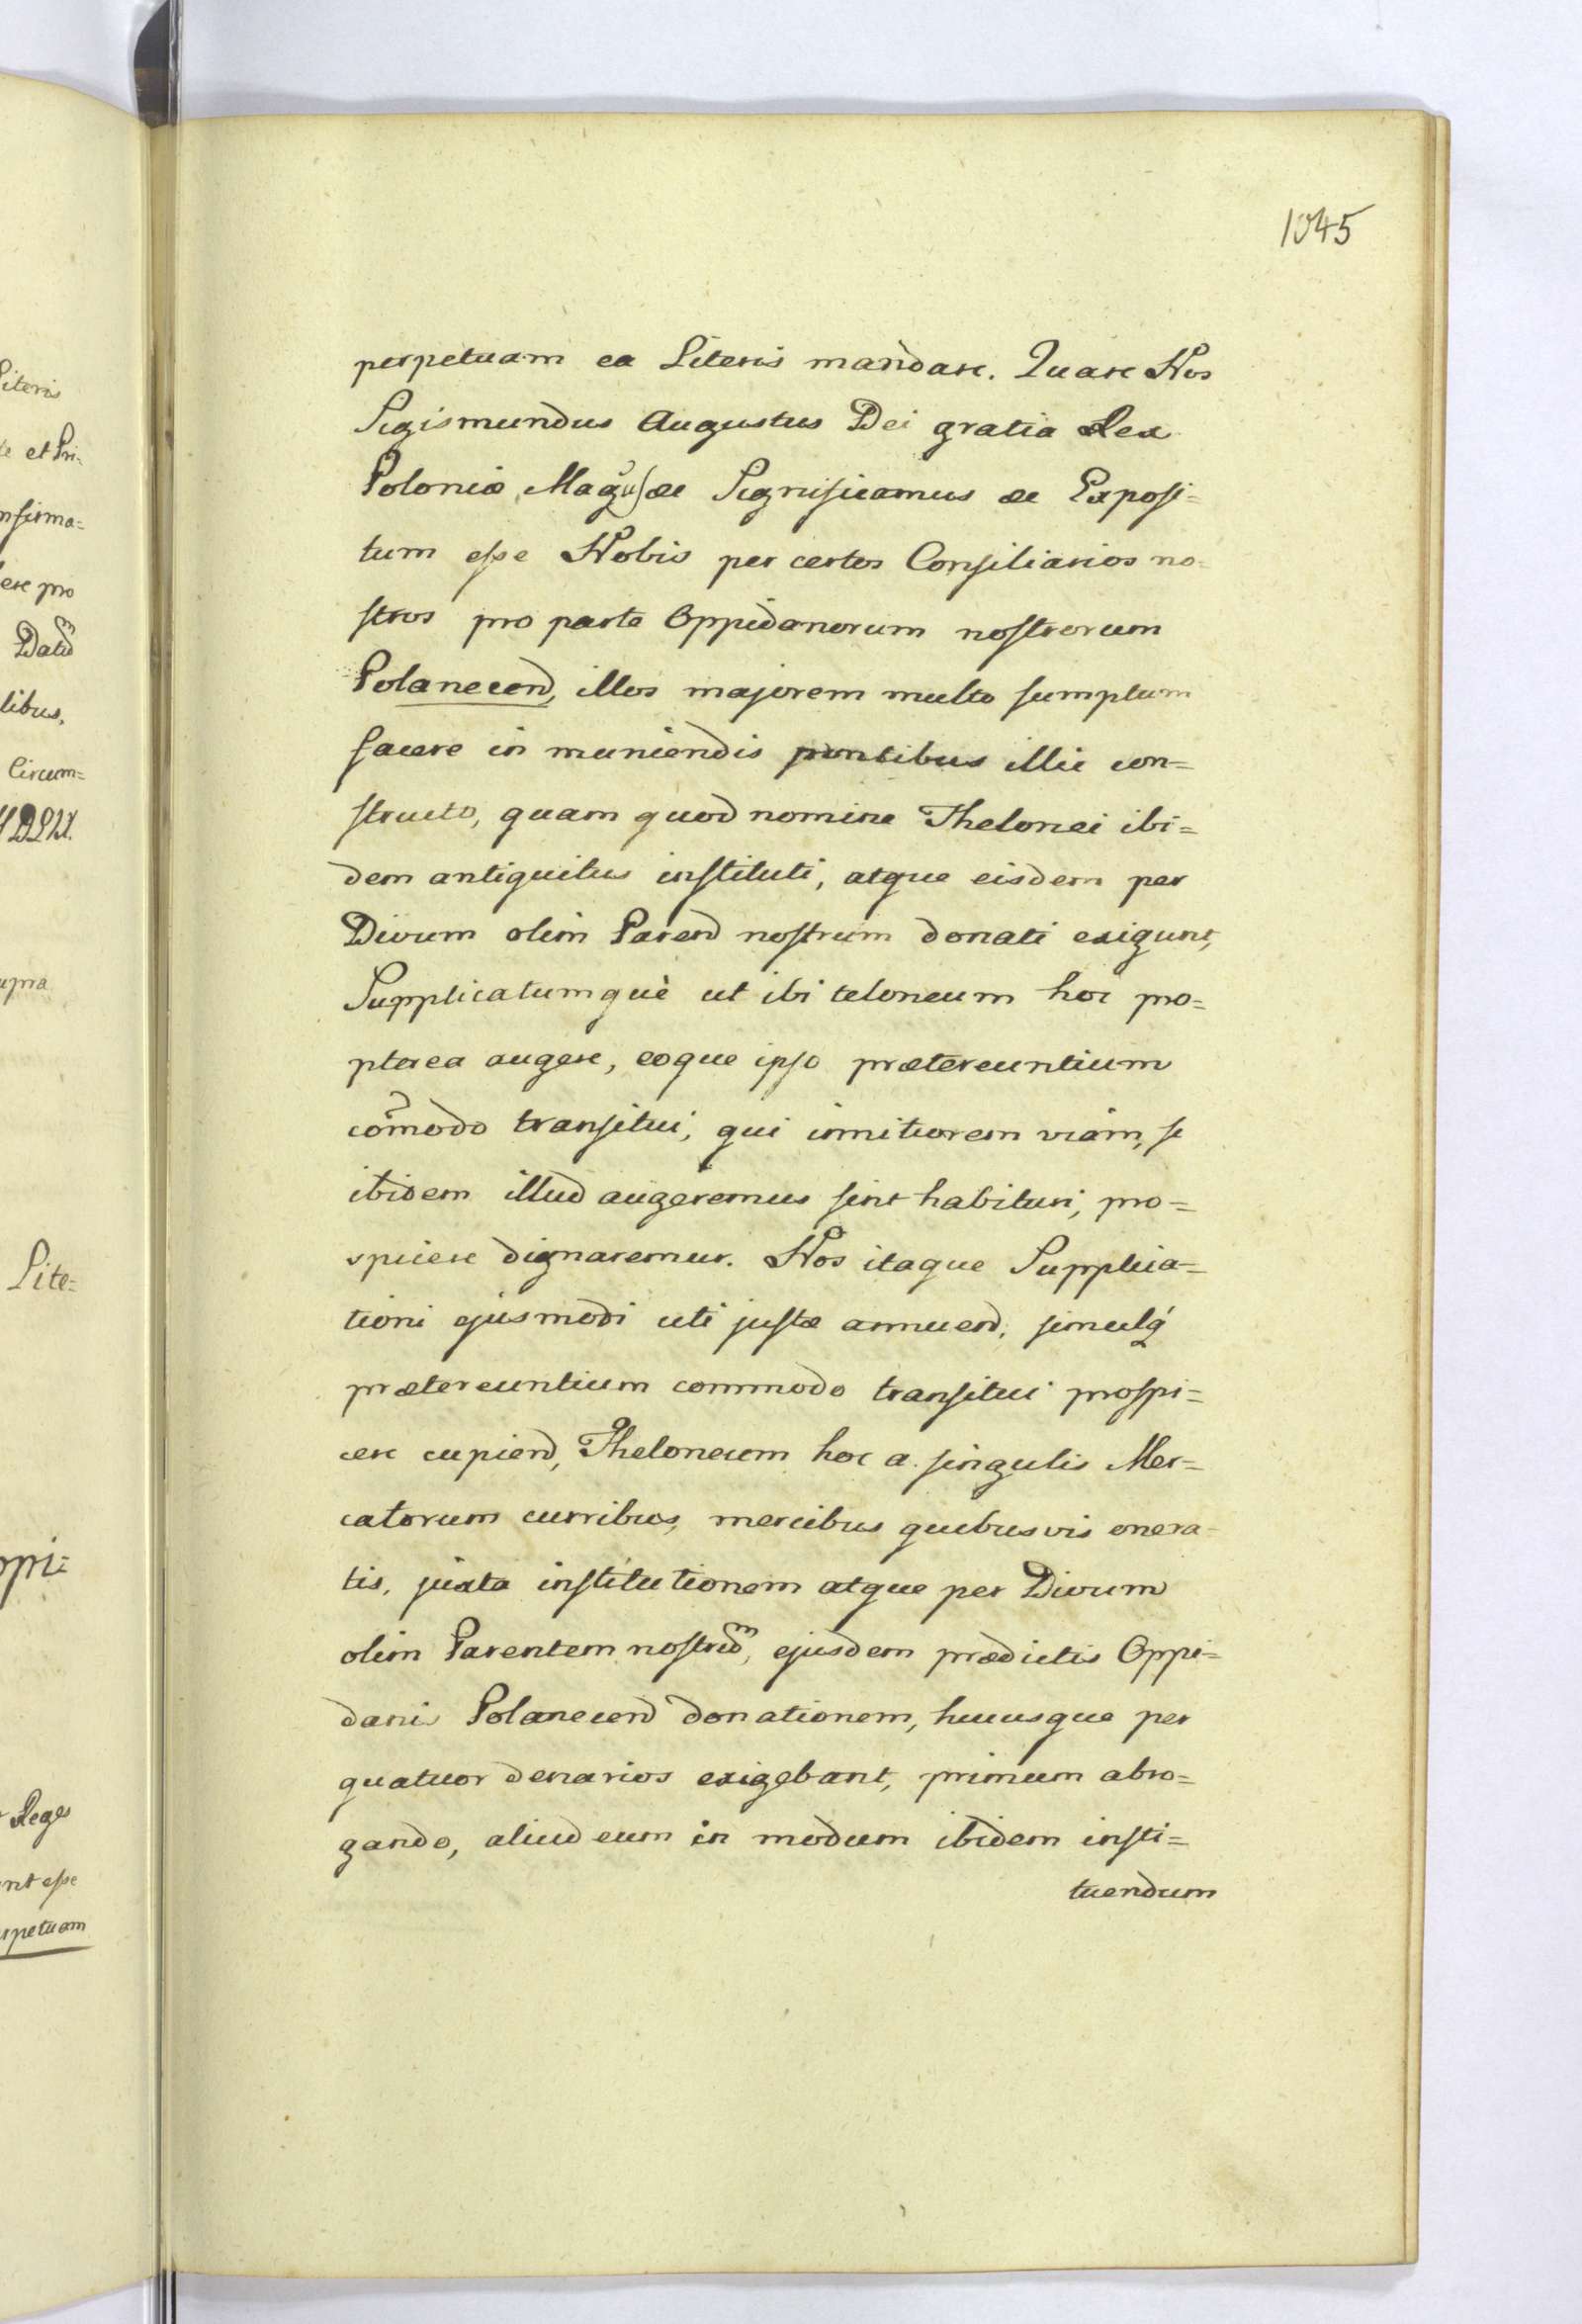 1045
perpetuam ea Literis mandare. Quare Nos
Sigismundus Augustus Dei gratia Rex
Poloniæ, Mag. &c Significamus &c Exposi=
tum esse Nobis per certos Consiliarios no=
stros pro parte Oppidanorum nostrorum
Polanecen, illos majorem multo sumptum
facere in muniendis pontibus illic con=
structo, quam quod nomine Thelonei ibi=
dem antiquitus instituti, atque eisdem per
Divum olim Paren nostrum donati exigunt,
Supplicatumquè ut ibi teloneum hoc pro=
pterea augere, eoque ipso prætereuntium
com̄odo transitui, qui immitiorem viam, si
ibidem illud augeremus sint habituri, pro=
spicere dignaremur. Nos itaque Supplica=
tioni ejusmodi uti justæ annuen, simulq́
prætereuntium commodo transitui prospi=
cere cupien, Theloneum hoc a singulis Mer=
catorum curribus, mercibus quibusvis onera=
tis, juxta institutionem atque per Divum
olim Parentem nostrum, ejusdem prædictis Oppi=
danis Polanecen donationem, hucusque per
quatuor denarios exigebant, primum abro=
gando, aliud eum in modum ibidem insti=
tuendum
Literis
et Pri=
nfirma=
ere pro
Datum
libus,
Circum=
upra
Lite=
ppi=
Reges
nt esse
rpetuam